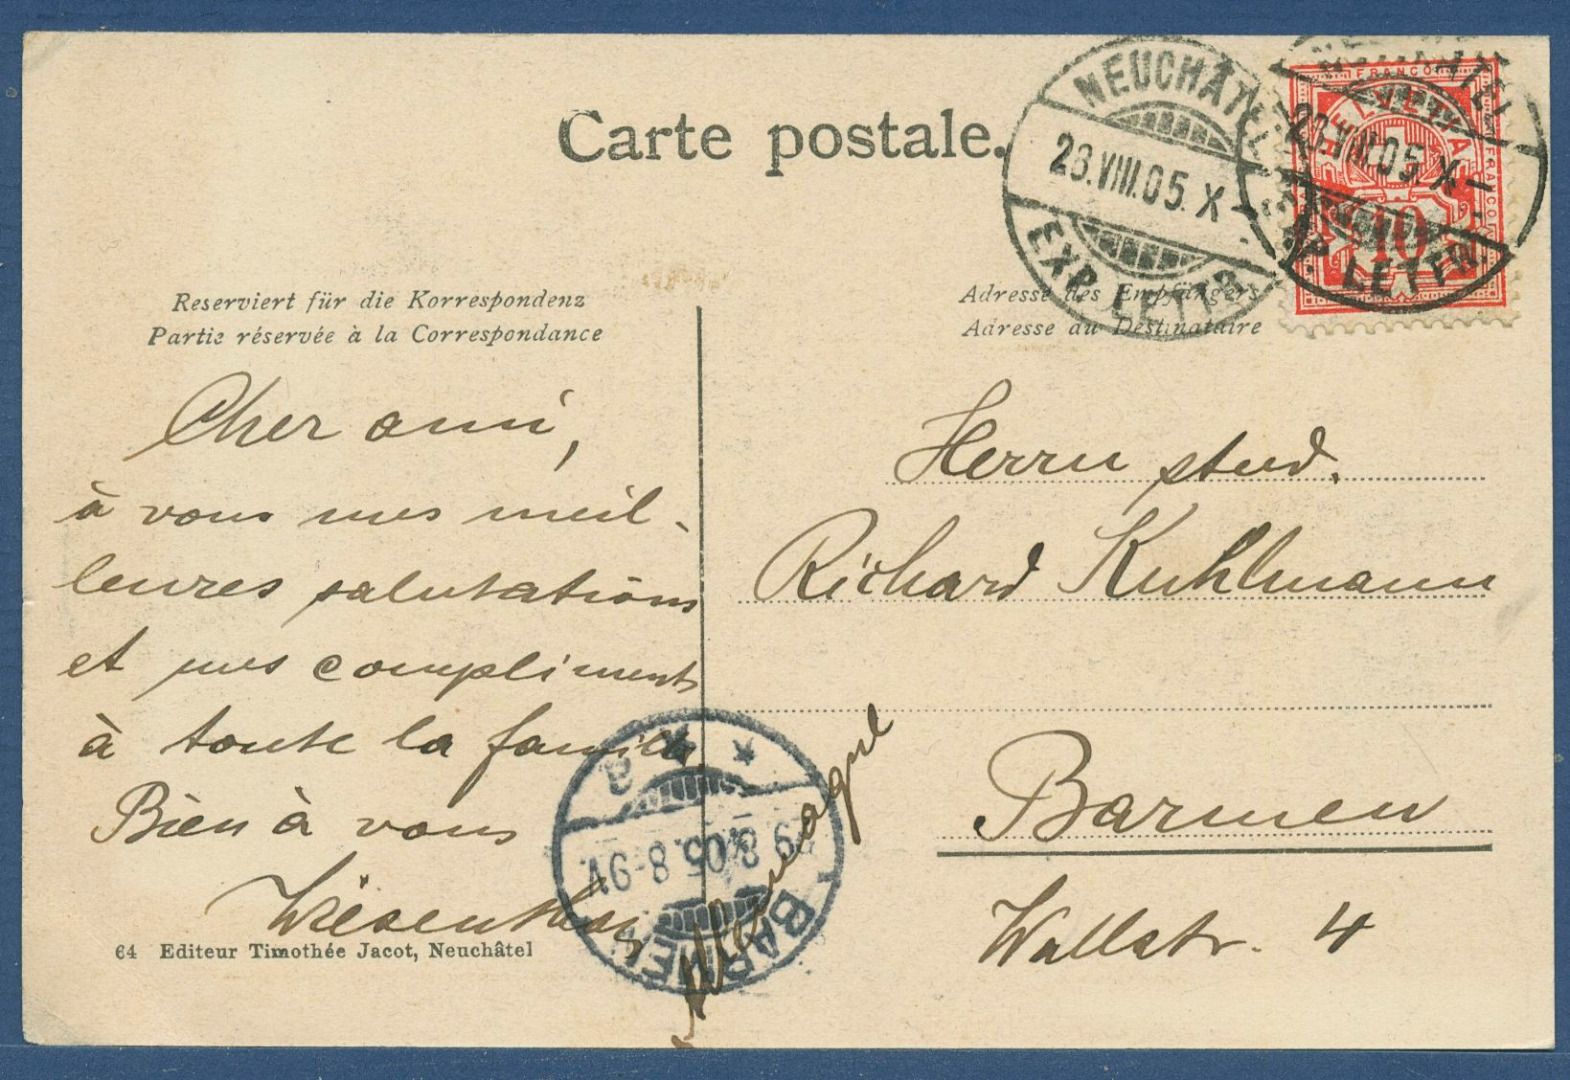 Carte postale.
NEUCHÂTEL
28.VIII.05.X
EXP. LETTR.
NEUCHÂTEL
28.VIII.05.X
EXP. LETTR.
FRANCO
HELVETIA
FRANCO
10
Reserviert für die Korrespondenz
Partie réservée à la Correspondance
Adresse des Empfängers
Adresse du Destinataire
Cher ami,
à vous mes meil-
leures salutations
et mes compliments
à toute la famille
Bien à vous
Wiesenthal
64 Editeur Timothée Jacot, Neuchâtel
Herrn stud.
Richard Kuhlmann
Barmen
Wallstr. 4
Allemagne
BARMEN
29.8.05.8-9V.